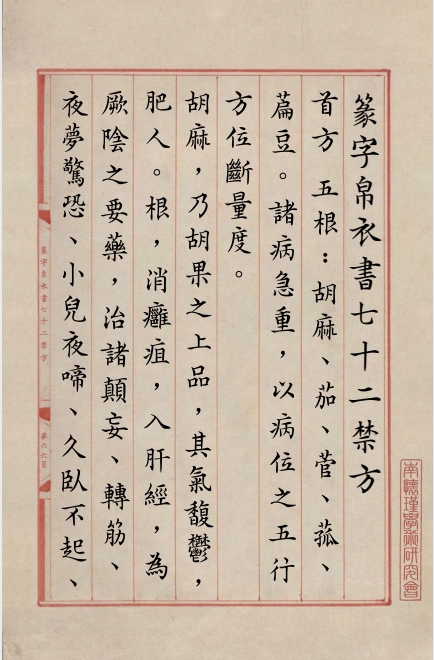 篆字帛衣書七十二禁方
首方 五根：胡麻、茄、菅、菰、
萹豆。諸病急重，以病位之五行
方位斷量度。
胡麻，乃胡果之上品，其氣馥鬱，
肥人。根，消癰疽，入肝經，為
厥陰之要藥，治諸顛妄、轉筋、
夜夢驚恐、小兒夜啼、久臥不起、
篆字帛衣書七十二禁方
第六六頁
南懷瑾學術研究會